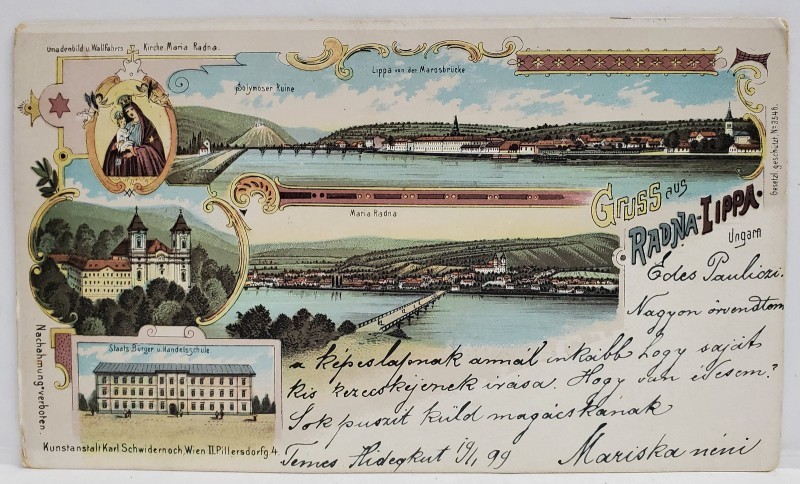 Gnadenbild u. Wallfahrts Kirche Maria Radna.
Solymoser Ruine
Lippa von der Marosbrücke
Gesetzl. geschützt. No 3546.
Maria Radna
Gruss aus
RADNA-LIPPA.
Ungarn
Édes Pauliczi.
Nagyon örvendtem
a képeslapnak annál inkább hogy saját
kis kezecskéjének irása. Hogy van édesem?
Sok puszit küld magácskának
Temes Hidegkut 19/1 99
Mariska néni
Staats-Bürger u. Handelsschule.
Nachahmung verboten.
Kunstanstalt Karl Schwidernoch, Wien II. Pillersdorfg. 4.